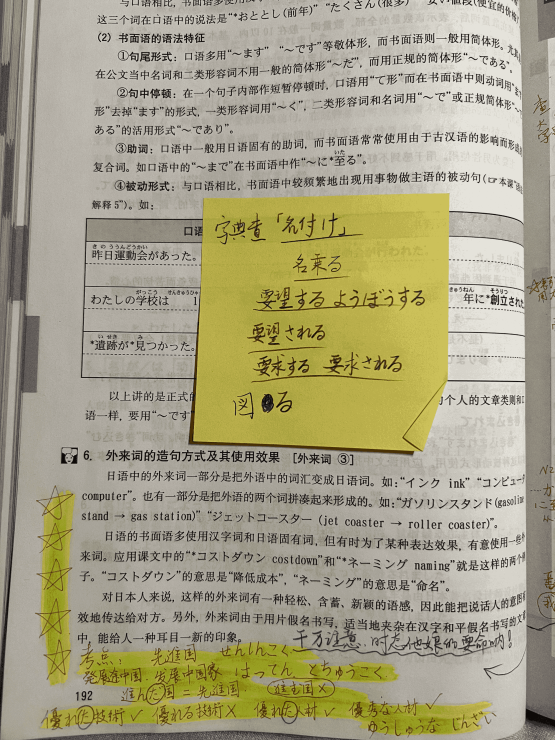 与口语相比，书面语多使用
这三个词在口语中的说法是“*おととし(前年)” “たくさん(很多)” “安い値段(便宜的价格)
(2) 书面语的语法特征
①句尾形式：口语多用“～ます” “～です”等敬体形式，而书面语则一般用简体形式。尤其
在公文当中名词和二类形容词不用一般的简体形式“～だ”，而用正规的简体形式“～である”。
②句中停顿：在一个句子内部作短暂停顿时，口语用“て形”而在书面语中则动词用“ま
形”去掉“ます”的形式，一类形容词用“～く”，二类形容词和名词用“～で”或正规简体形“～で
ある”的活用形式“～であり”。
③助词：口语中一般用日语固有的助词，而书面语常常使用由于古汉语的影响而形成的
复合词。如口语中的“～まで”在书面语中作“～に*至る”。
いた
④被动形式：与口语相比，书面语中较频繁地出现用事物做主语的被动句(☞本课“语
解释 5”)。如：
口语
きのううんどうかい
昨日運動会があった。
がっこう
わたしの学校は 1
年に*創立された
そうりつ
いせき み
*遺跡が*見つかった。
字典查「名付け」
名乗る
要望する ようぼうする
要望される
要求する 要求される
図る
以上讲的是正式的
个人的文章类则和口
语一样，要用“～です”
6. 外来词的造句方式及其使用效果 [外来词 ③]
日语中的外来词一部分是把外语中的词汇变成日语词。如：“インク ink” “コンピュータ
computer”。也有一部分是把外语的两个词拼凑起来形成的。如：“ガソリンスタンド(gasoline
stand → gas station)” “ジェットコースター (jet coaster → roller coaster)”。
日语的书面语多使用汉字词和日语固有词，但有时为了某种表达效果，有意使用一些外
来词。应用课文中的“*コストダウン costdown”和“*ネーミング naming”就是这样的两个例
子。“コストダウン”的意思是“降低成本”，“ネーミング”的意思是“命名”。
对日本人来说，这样的外来词有一种轻松、含蓄、新颖的语感，因此能把说话人的意图有
效地传达给对方。另外，外来词由于用片假名书写，适当地夹杂在汉字和平假名书写的文章
中，能给人一种耳目一新的印象。
千万注意，时态他娘的要命的啊！
考点： 先進国 せんしんこく
発展途中国 发展中国家 はってんとちゅうこく
192
進んだ国＝先進国 進む国×
優れた技術✓ 優れる技術× 優れた人材✓ 優秀な人材✓
ゆうしゅうな じんざい